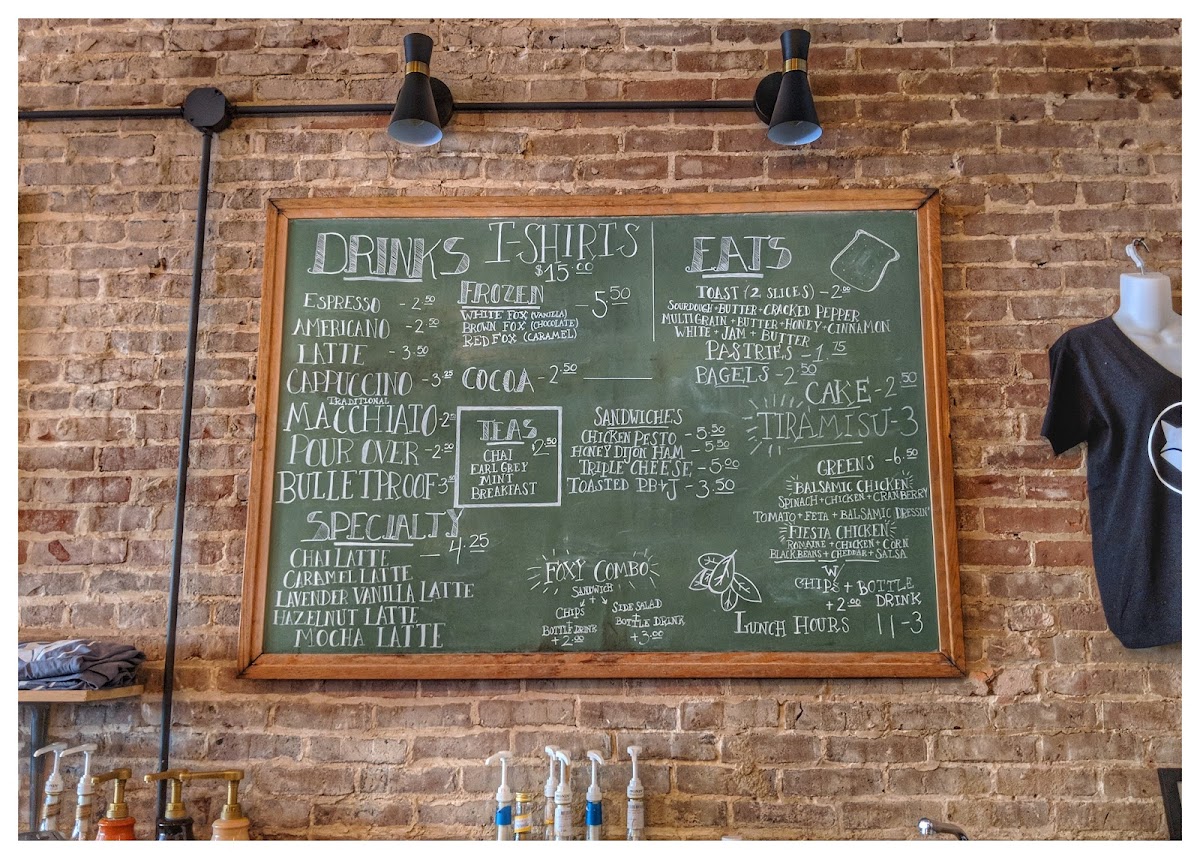 DRINKS
ESPRESSO - 2.50
AMERICANO - 2.50
LATTE - 3.50
CAPPUCCINO - 3.25
TRADITIONAL
MACCHIATO - 2.25
POUR OVER - 2.50
BULLETPROOF 3.50
SPECIALTY
- 4.25
CHAI LATTE
CARAMEL LATTE
LAVENDER VANILLA LATTE
HAZELNUT LATTE
MOCHA LATTE
T-SHIRTS
$15.00
FROZEN - 5.50
WHITE FOX (VANILLA)
BROWN FOX (CHOCOLATE)
RED FOX (CARAMEL)
COCOA - 2.50
TEAS
$2.50
CHAI
EARL GREY
MINT
BREAKFAST
SANDWICHES
CHICKEN PESTO - 5.50
HONEY DIJON HAM - 5.50
TRIPLE CHEESE - 5.00
TOASTED PB+J - 3.50
FOXY COMBO
SANDWICH
+
CHIPS
+
BOTTLE DRINK
+2.00
SIDE SALAD
+
BOTTLE DRINK
+3.00
EATS
TOAST (2 SLICES) - 2.00
SOURDOUGH + BUTTER + CRACKED PEPPER
MULTIGRAIN + BUTTER + HONEY + CINNAMON
WHITE + JAM + BUTTER
PASTRIES - 1.75
BAGELS - 2.50
CAKE - 2.50
TIRAMISU - 3
GREENS - 6.50
BALSAMIC CHICKEN
SPINACH + CHICKEN + CRANBERRY
TOMATO + FETA + BALSAMIC DRESSIN'
FIESTA CHICKEN
ROMAINE + CHICKEN + CORN
BLACK BEANS + CHEDDAR + SALSA
W/
CHIPS + BOTTLE
+2.00 DRINK
LUNCH HOURS 11-3